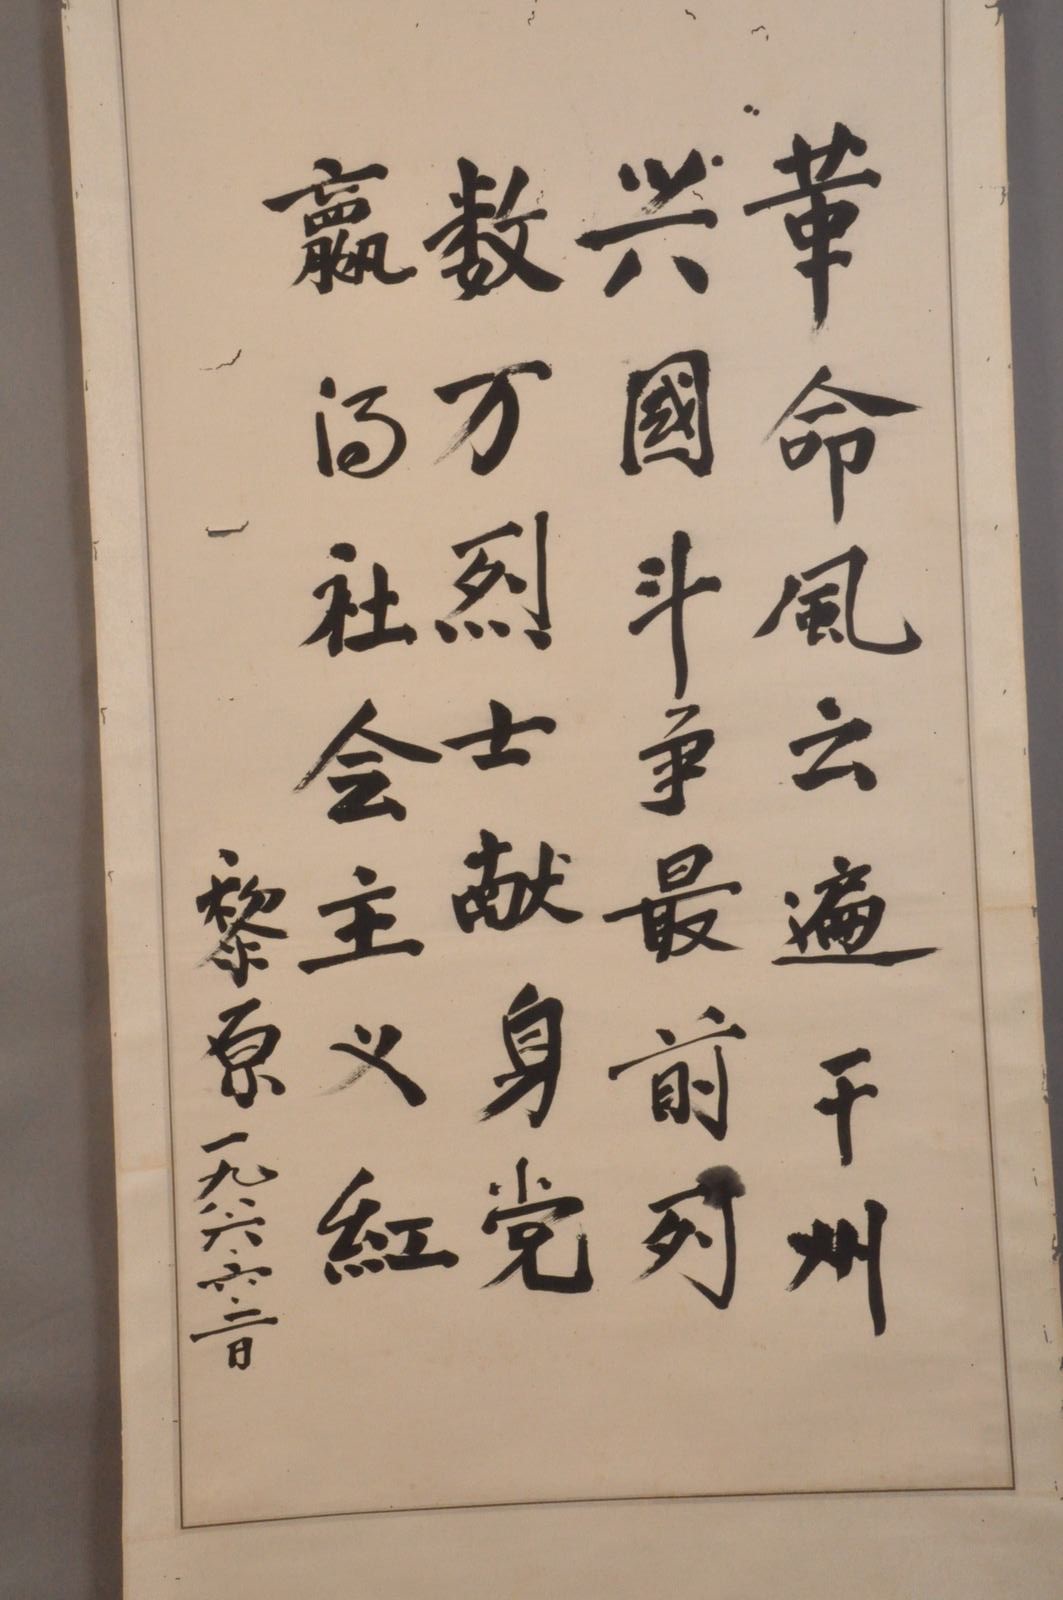 革命風云遍干州
兴國斗争最前列
数万烈士献身党
赢得社会主义紅
黎原一九八六.六.二日